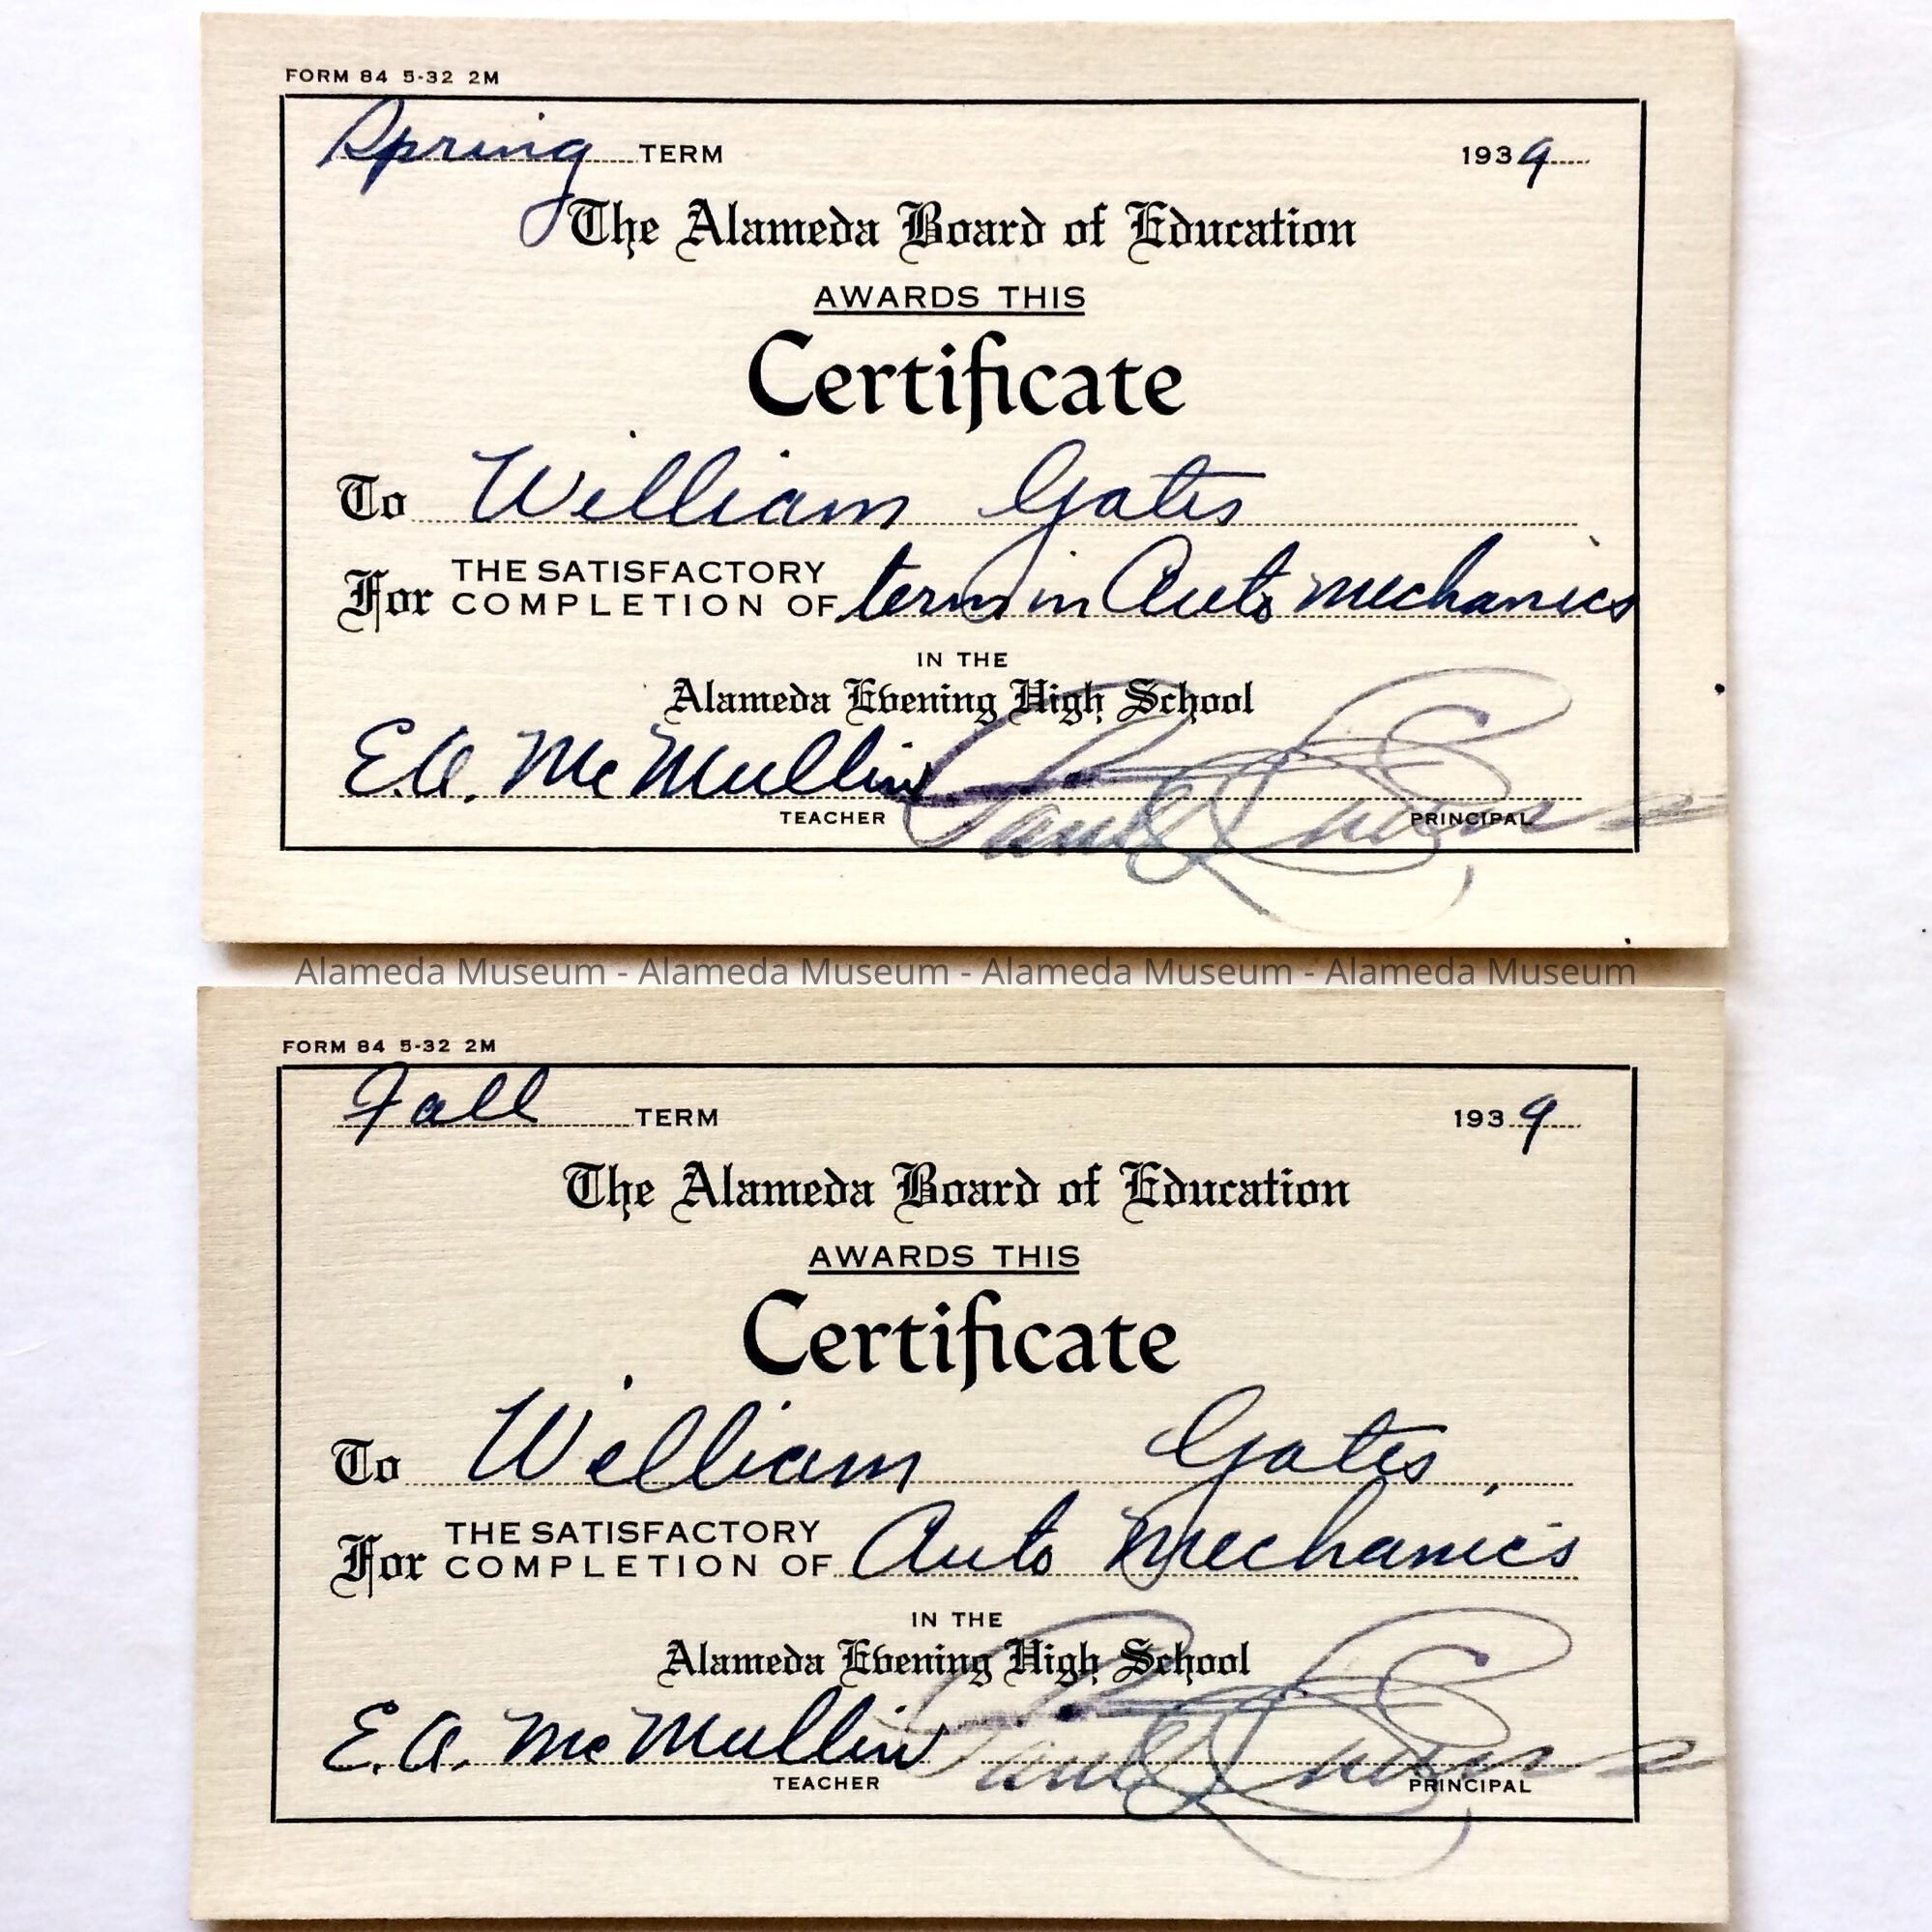 FORM 84 5-32 2M
Spring TERM 1939
The Alameda Board of Education
AWARDS THIS
Certificate
To William Gates
For THE SATISFACTORY COMPLETION OF term in Auto mechanics
IN THE
Alameda Evening High School
E.A. McMullin
TEACHER PRINCIPAL
Alameda Museum - Alameda Museum - Alameda Museum - Alameda Museum
FORM 84 5-32 2M
Fall TERM 1939
The Alameda Board of Education
AWARDS THIS
Certificate
To William Gates,
For THE SATISFACTORY COMPLETION OF Auto Mechanics
IN THE
Alameda Evening High School
E.A. McMullin
TEACHER PRINCIPAL